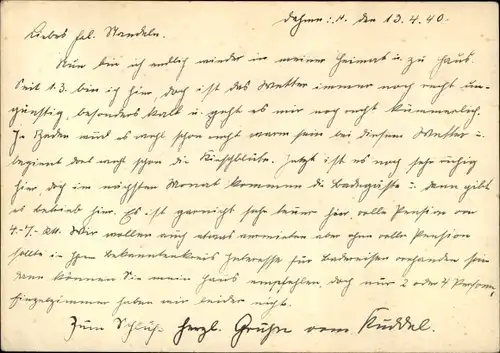 Dahme: d. 13.4.40.
Liebes Frl. Standeln.
Nun bin ich endlich wieder in meiner Heimat u. zu Haus.
Seit 1.3. bin ich hier, doch ist das Wetter immer noch recht un-
günstig, besonders kalt u. geht es mir noch recht kümmerlich.
In Baden wird es wohl schon recht warm sein bei diesem Wetter u.
beginnt dort wohl schon die Kirschblüte. Jetzt ist es noch sehr ruhig
hier, doch im nächsten Monat kommen die Badegäste u. dann gibt
es Betrieb hier. Es ist garnicht sehr teuer hier, volle Pension von
4.-7. RM. Wir wollen auch etwas vermieten aber ohne volle Pension
sollte in Ihrem Bekanntenkreis Interesse für Badereisen vorhanden sein
dann können Sie mein Haus empfehlen, doch nur 2 oder 4 Personen,
Einzelzimmer haben wir leider nicht.
Zum Schluß herzl. Grüße vom Kuddel.